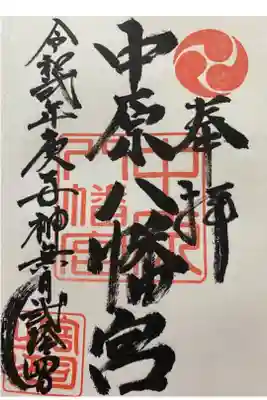 奉拝
中原八幡宮
令和弐年庚子神無月弐拾四日
中原八幡宮